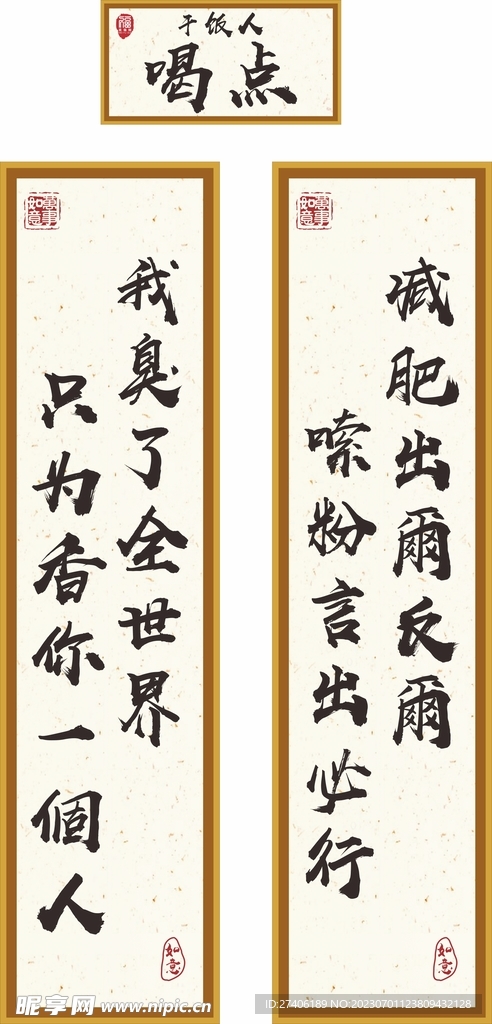 干饭人
喝点
减肥出爾反爾
嗦粉言出必行
萬事
如意
如意
我臭了全世界
只为香你一個人
萬事
如意
如意
昵享网 www.nipic.cn
ID:27406189 NO:20230701123809432128